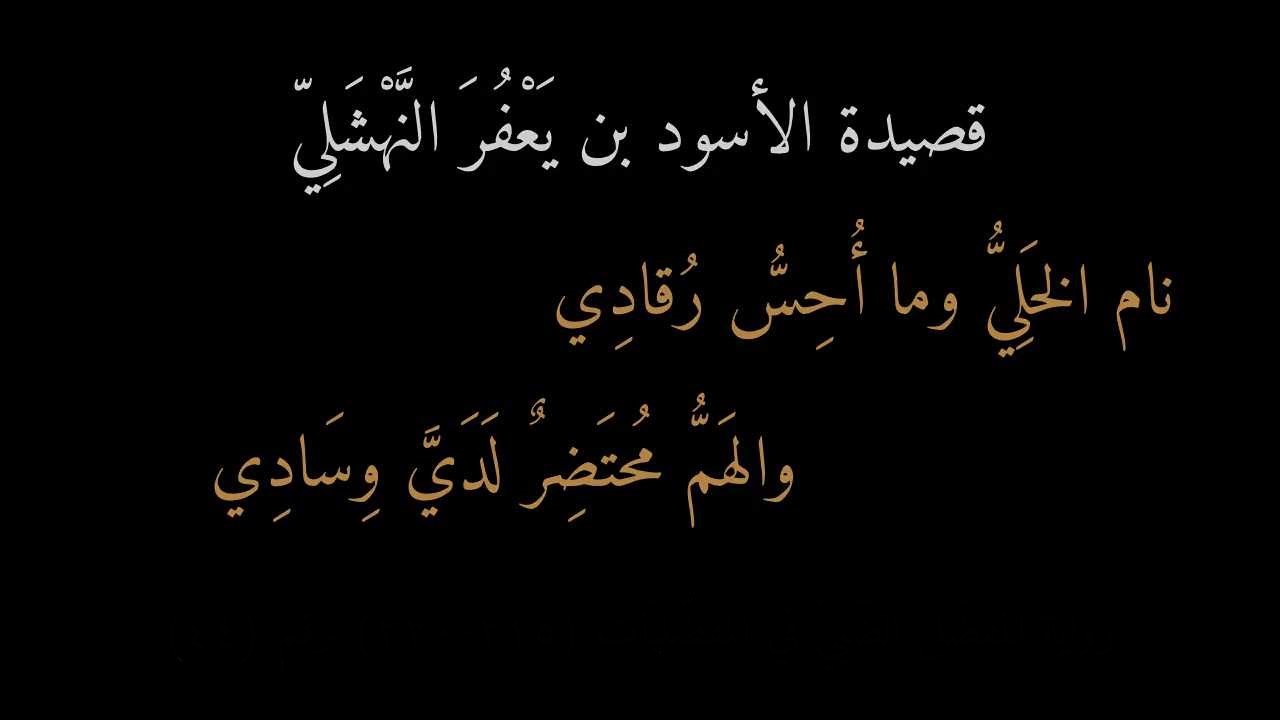 قصيدة الأسود بن يَعْفُرَ النَّهْشَلِيّ
نام الخَلِيُّ وما أُحِسُّ رُقادِي
والهَمُّ مُحتَضِرٌ لَدَيَّ وِسَادِي